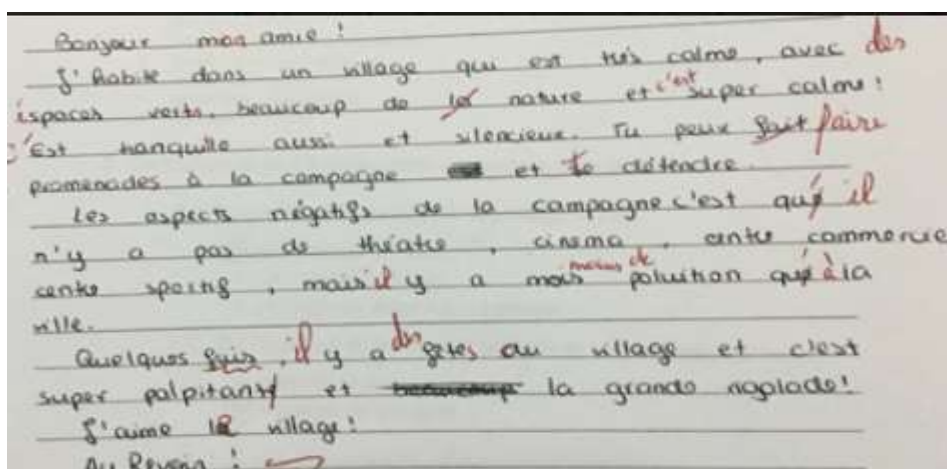 Bonjour mon amie !
J'habite dans un village qui est très calme, avec des
espaces verts, beaucoup de la nature et c'est super calme !
C'Est tranquille aussi et silencieux. Tu peux fait faire
promenades à la campagne et te détendre.
Les aspects négatifs de la campagne c'est qu'il
n'y a pas de théatre, cinema, centre commerciel
centre sportif, mais il y a mois moins de poluition qu'à la
ville.
Quelques fois, il y a des fêtes au village et c'est
super palpitant et beaucoup la grande rigolade!
J'aime le village!
Au Revoir !